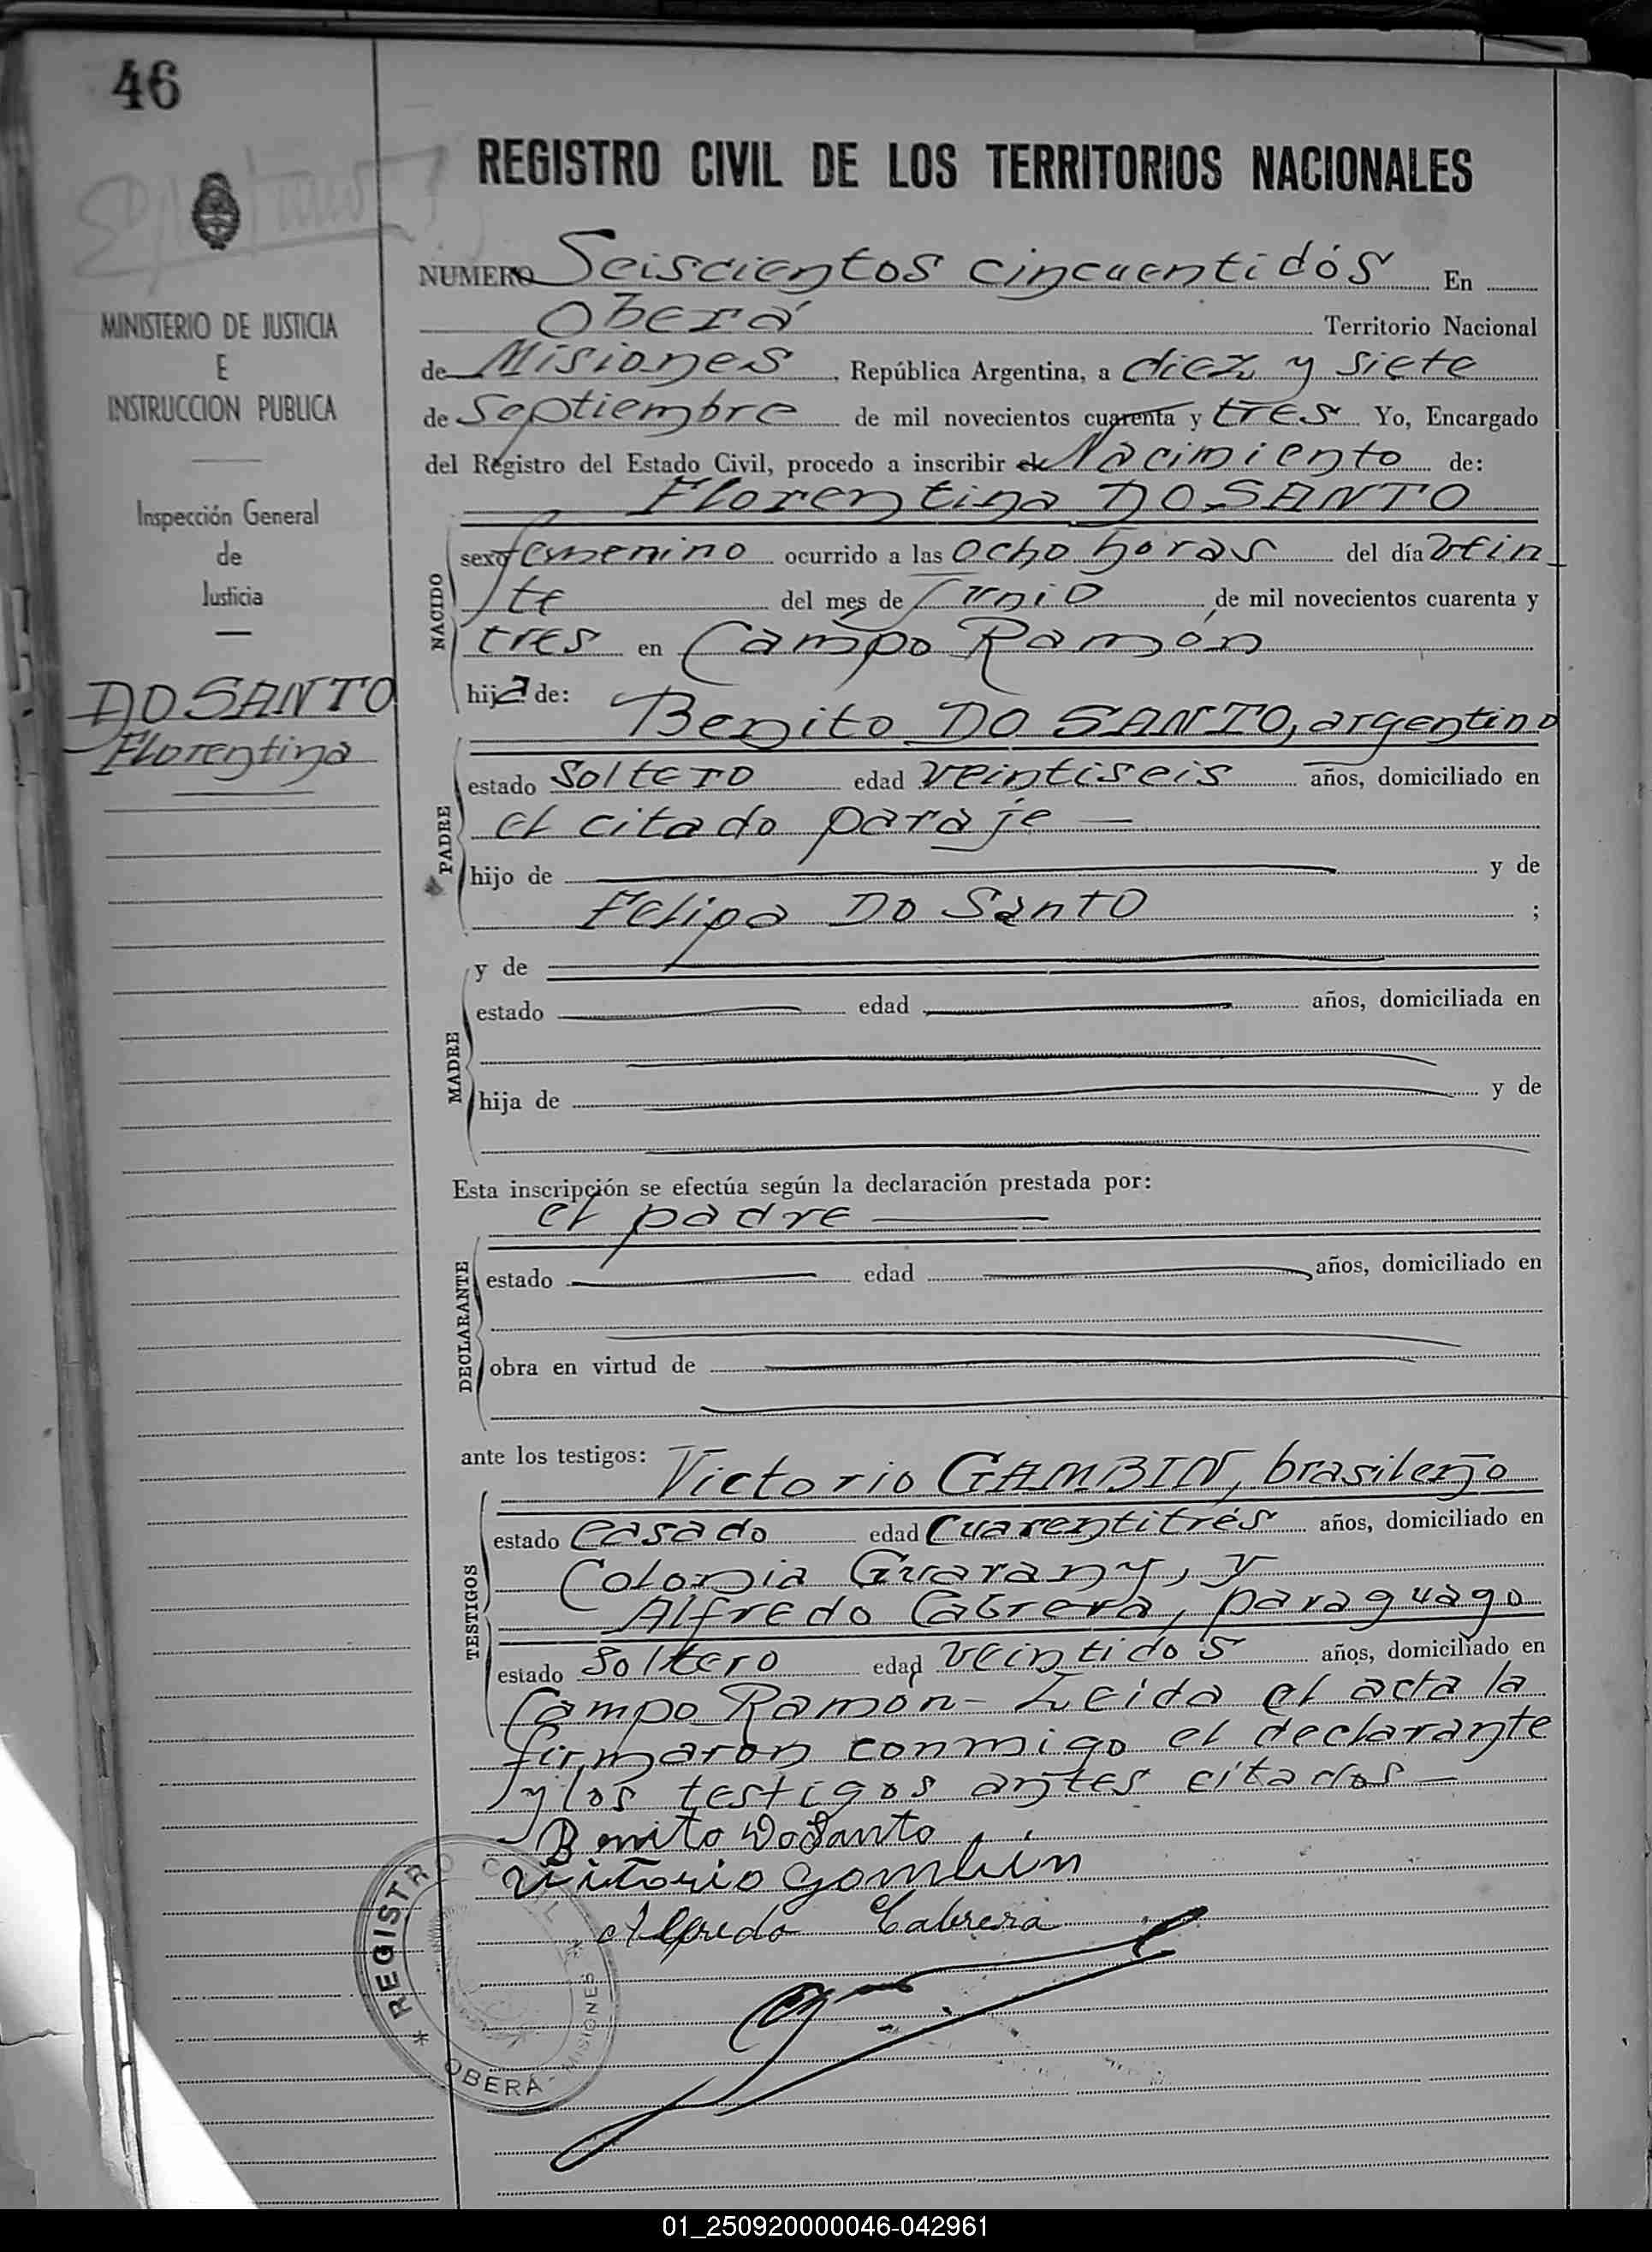 46
REGISTRO CIVIL DE LOS TERRITORIOS NACIONALES
NUMERO Seiscientos cincuentidós En
Oberá Territorio Nacional
de Misiones, República Argentina, a diez y siete
de Septiembre de mil novecientos cuarenta y tres Yo, Encargado
del Registro del Estado Civil, procedo a inscribir el Nacimiento de:
Florentina DO SANTO
MINISTERIO DE JUSTICIA
E
INSTRUCCION PUBLICA
Inspección General
de
Justicia
DO SANTO
Florentina
NACIDO
sexo femenino ocurrido a las ocho horas del día vein
te del mes de Junio de mil novecientos cuarenta y
tres en Campo Ramón
hija de:
Benito DO SANTO, argentino
PADRE
estado soltero edad veintiseis años, domiciliado en
el citado paraje —
hijo de y de
Felipa Do Santo ;
MADRE
y de
estado edad años, domiciliada en
hija de y de
Esta inscripción se efectúa según la declaración prestada por:
el padre
DECLARANTE
estado edad años, domiciliado en
obra en virtud de
ante los testigos: Victorio GAMBIN, brasileño
TESTIGOS
estado casado edad cuarentitrés años, domiciliado en
Colonia Guarany, y
Alfredo Cabrera, paraguayo
estado soltero edad veintidos años, domiciliado en
Campo Ramon- Leida el acta la
firmaron conmigo el declarante
y los testigos antes citados —
Benito DoSanto
Vitorio Gombin
Alfredo Cabrera
REGISTRO CIVIL
* OBERÁ - MISIONES *
01_250920000046-042961